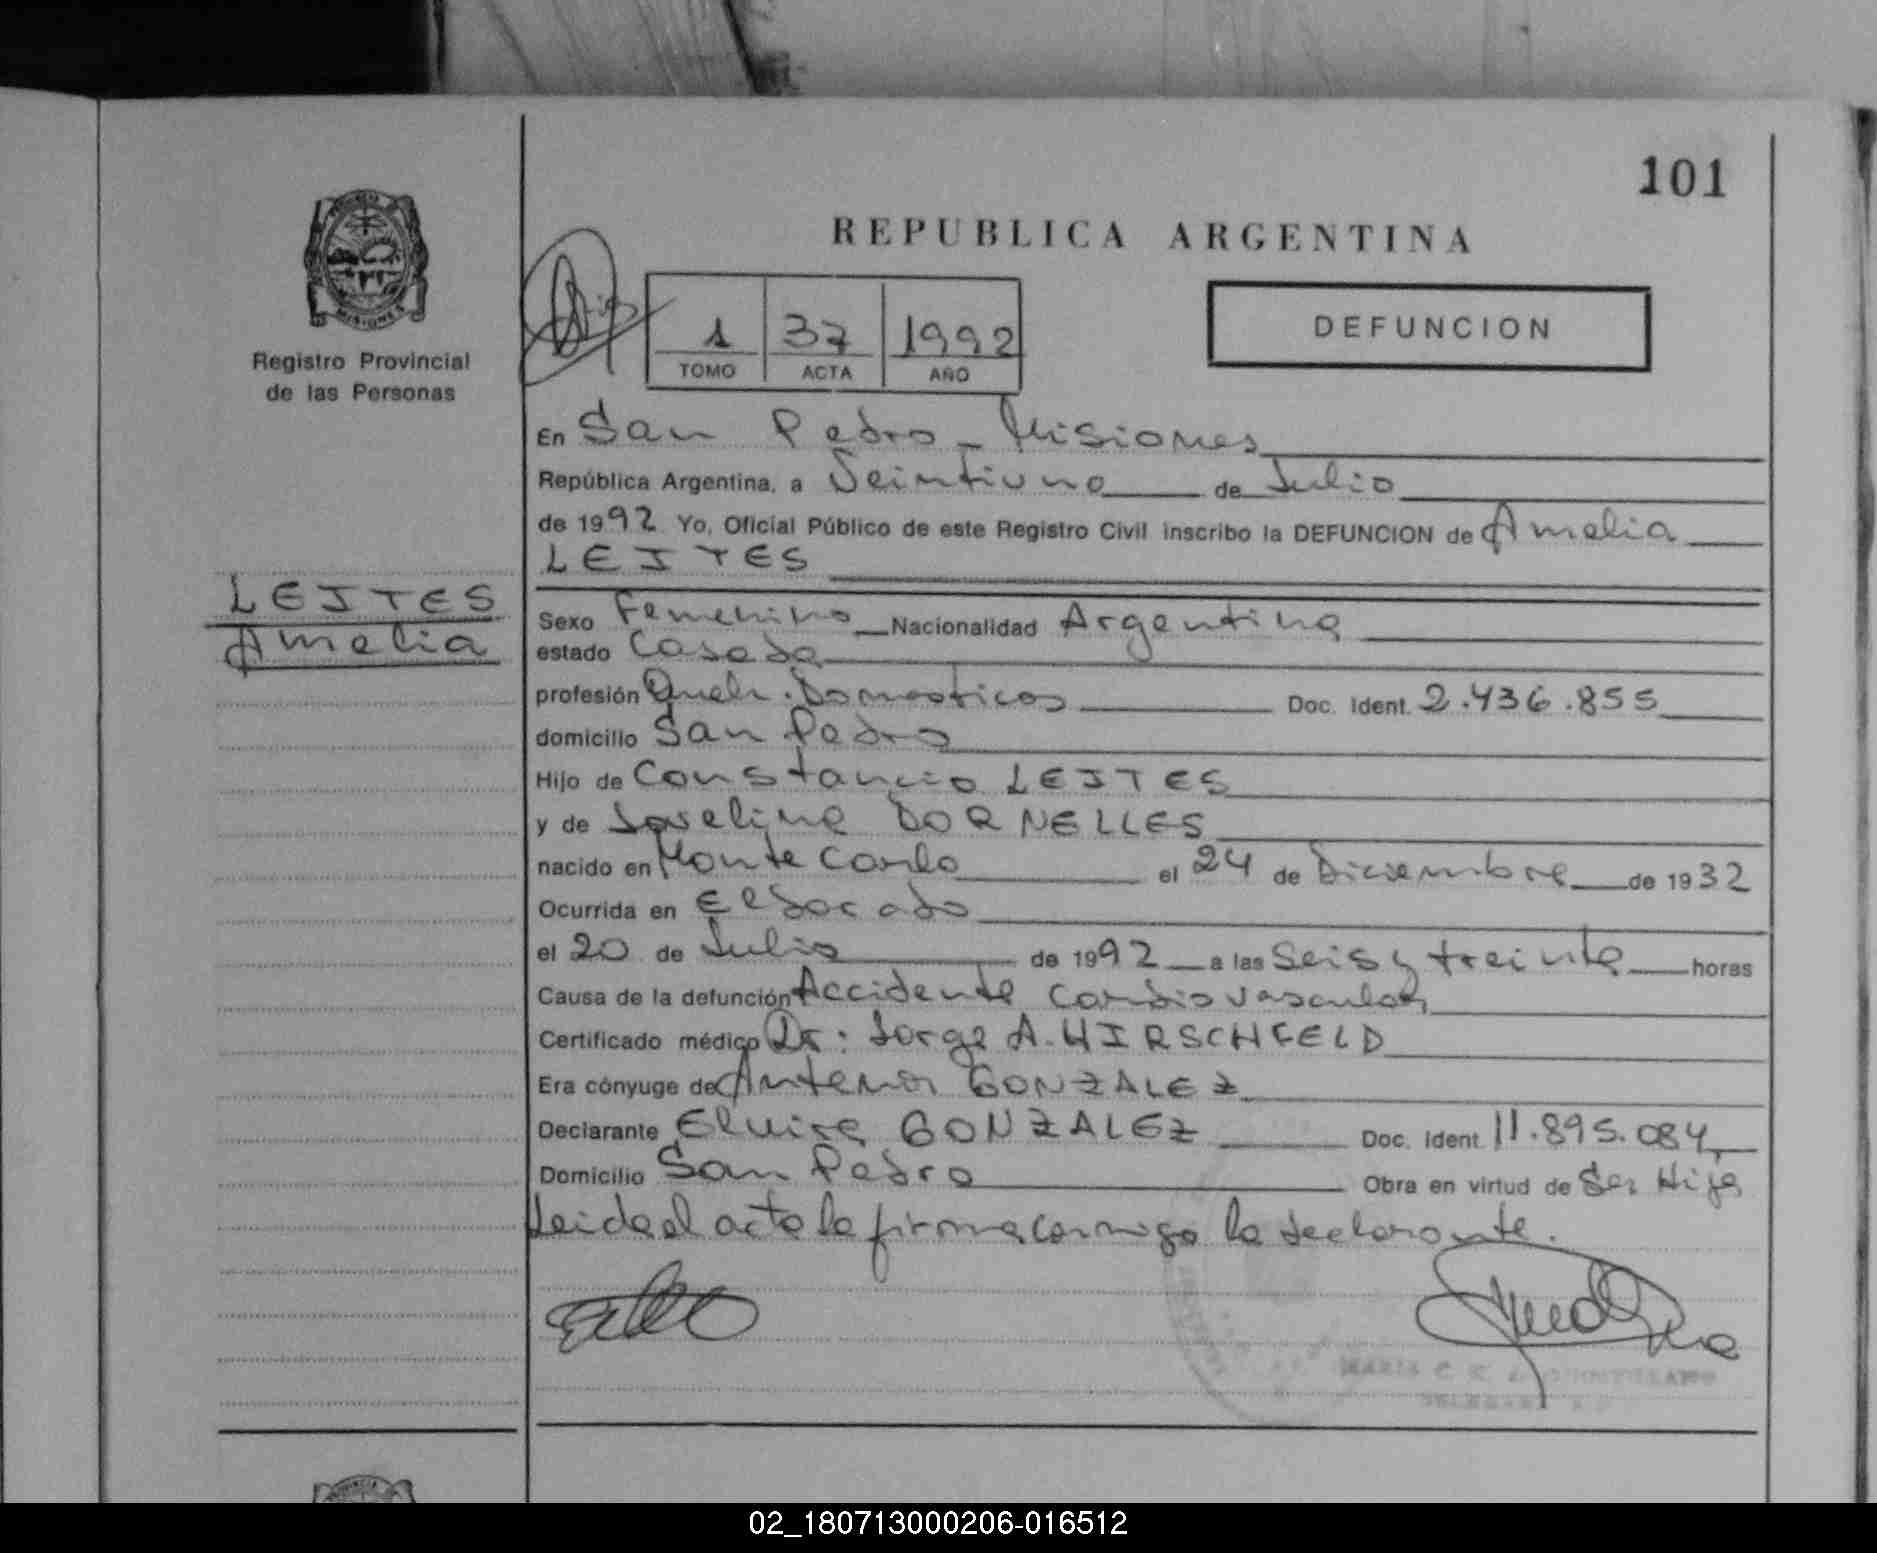 101
REPUBLICA ARGENTINA
MISIONES
Registro Provincial
de las Personas
1 37 1992
TOMO ACTA AÑO
DEFUNCION
En San Pedro - Misiones
República Argentina, a Veintiuno de Julio
de 1992 Yo, Oficial Público de este Registro Civil inscribo la DEFUNCION de Amelia
LEITES
LEITES
Amelia
Sexo Femenino Nacionalidad Argentina
estado Casada
profesión Queh. Domesticos Doc. Ident. 2.436.855
domicilio San Pedro
Hijo de Constancio LEITES
y de Jovelina DORNELLES
nacido en Monte Carlo el 24 de Diciembre de 1932
Ocurrida en Eldorado
el 20 de Julio de 1992 a las Seis y treinta horas
Causa de la defunción Accidente Cardiovascular
Certificado médico Dr: Jorge A. HIRSCHFELD
Era cónyuge de Antenor GONZALEZ
Declarante Elvira GONZALEZ Doc. Ident. 11.895.084
Domicilio San Pedro Obra en virtud de Ser Hija
Leida el acta la firma conmigo la declarante.
MARIA C.
02_180713000206-016512